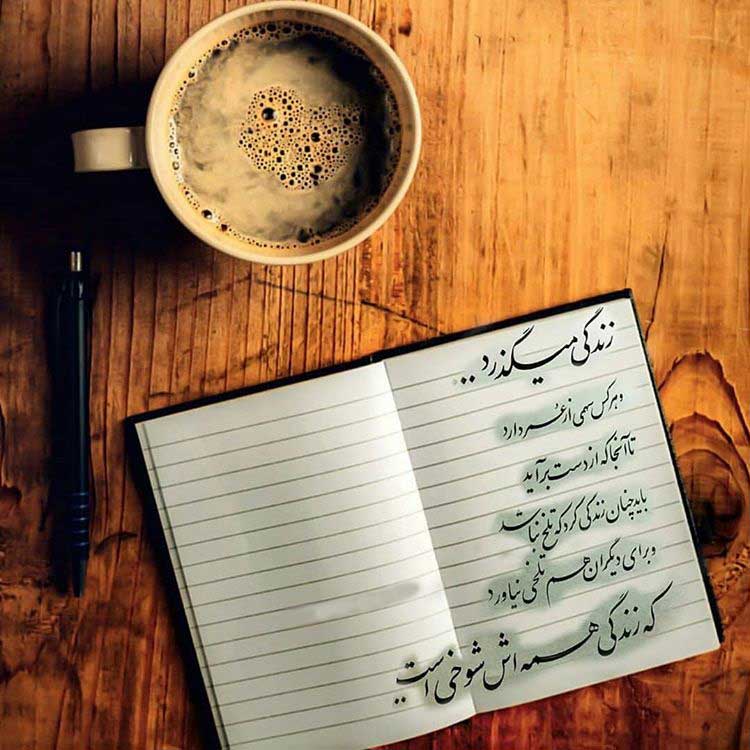 زندگی میگذرد...
و هرکس سهمی از عمر دارد
تا آنجا که از دست برآید
باید چنان زندگی کرد که تلخ نباشد
و برای دیگران هم تلخی نیاورد
که زندگی همه اش شوخی است